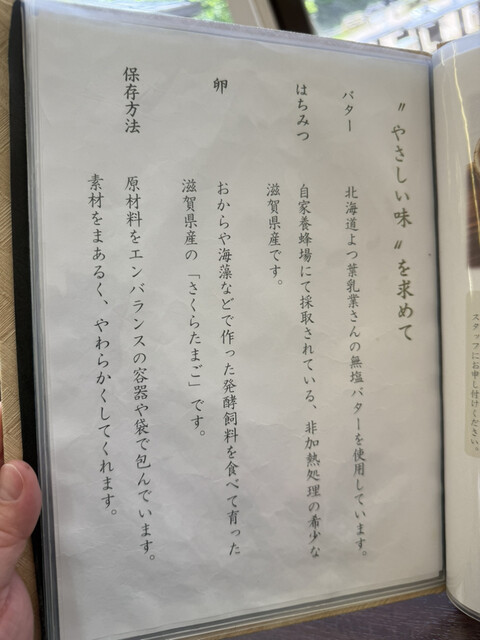 〃やさしい味〃を求めて
バター
北海道よつ葉乳業さんの無塩バターを使用しています。
はちみつ
自家養蜂場にて採取されている、非加熱処理の希少な
滋賀県産です。
卵
おからや海藻などで作った発酵飼料を食べて育った
滋賀県産の「さくらたまご」です。
保存方法
原材料をエンバランスの容器や袋で包んでいます。
素材をまあるく、やわらかくしてくれます。
スタッフにお申し付けください。